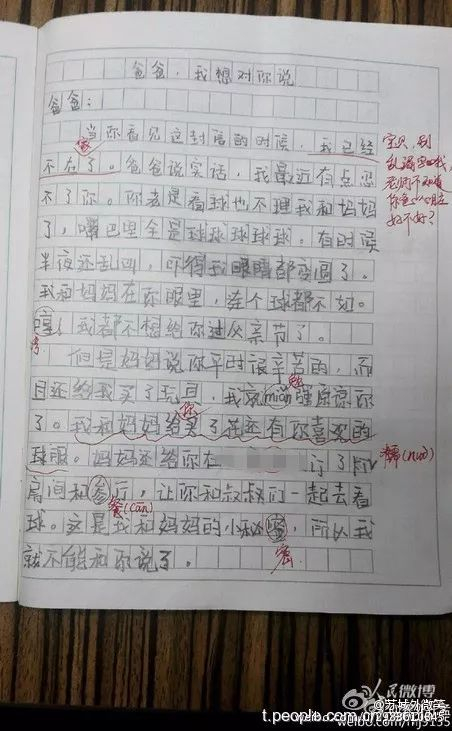 爸爸,我想对你说
爸爸:
当你看见这封信的时候,我已经
不在了。爸爸说实话,我最近有点忍
不了你。你老是看球也不理我和妈妈
了,嘴巴里全是球球球球球。有时候
半夜还乱叫,吓得我眼睛都变圆了。
我和妈妈在你眼里,连个球都不如。
哼!我都不想给你过父亲节了。
但是妈妈说你平时很辛苦的,而
且还给我买了玩具,我就mian强原谅你
了。我和妈妈给买了花还有你喜欢的
球服。妈妈还给你在 订了
房间和参厅,让你和叔叔们一起去看
球。这是我和妈妈的小秘蜜,所以我
就不能和你说了。
宝贝,别
好不好?
家
勉
你
餐(cān)
密
人民微博
@苏城外微笑
t.people.com.cn
weibo.com/hj9135